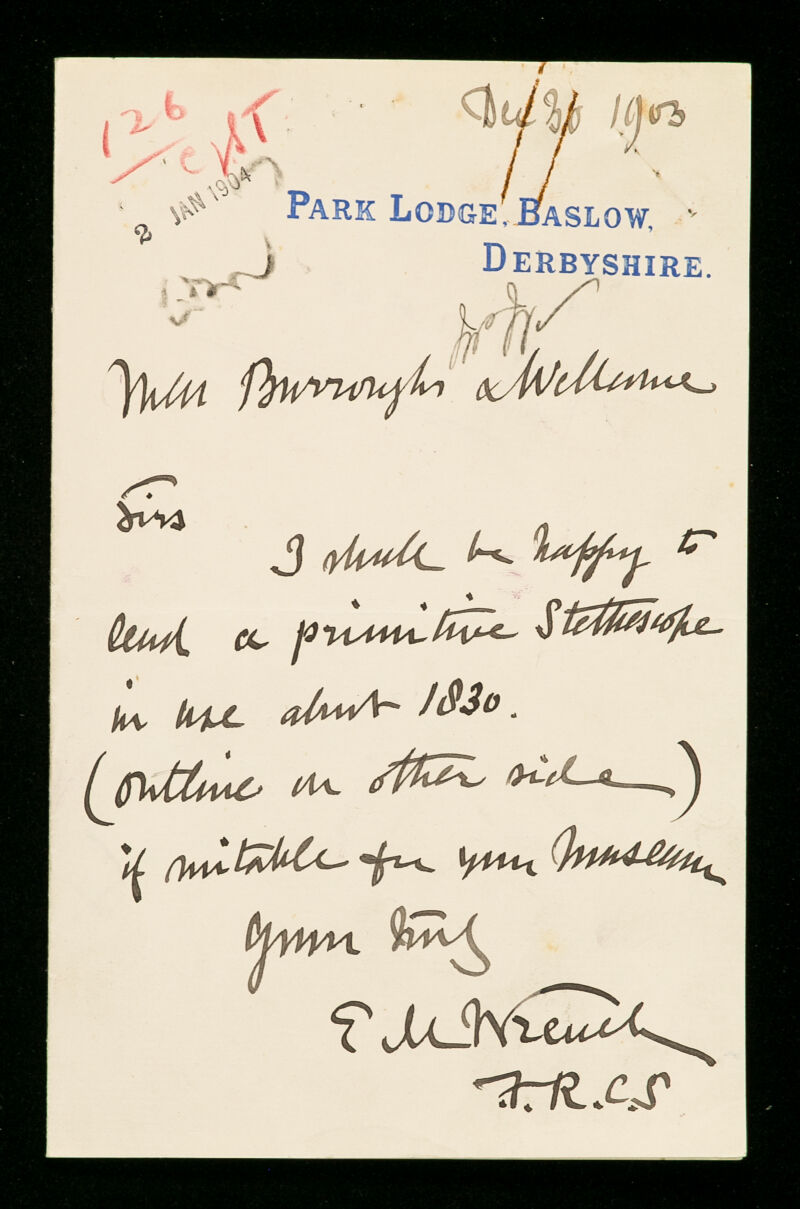 126
Dec 30 1903
2 JAN 1904
PARK LODGE, BASLOW,
DERBYSHIRE.
Messrs Burroughs & Wellcome
Sirs
I shall be happy to
lend a primitive Stethescope
in use about 1830.
(outline on other side)
if suitable for your Museum
Yours truly
E M Wrench
F.R.C.S